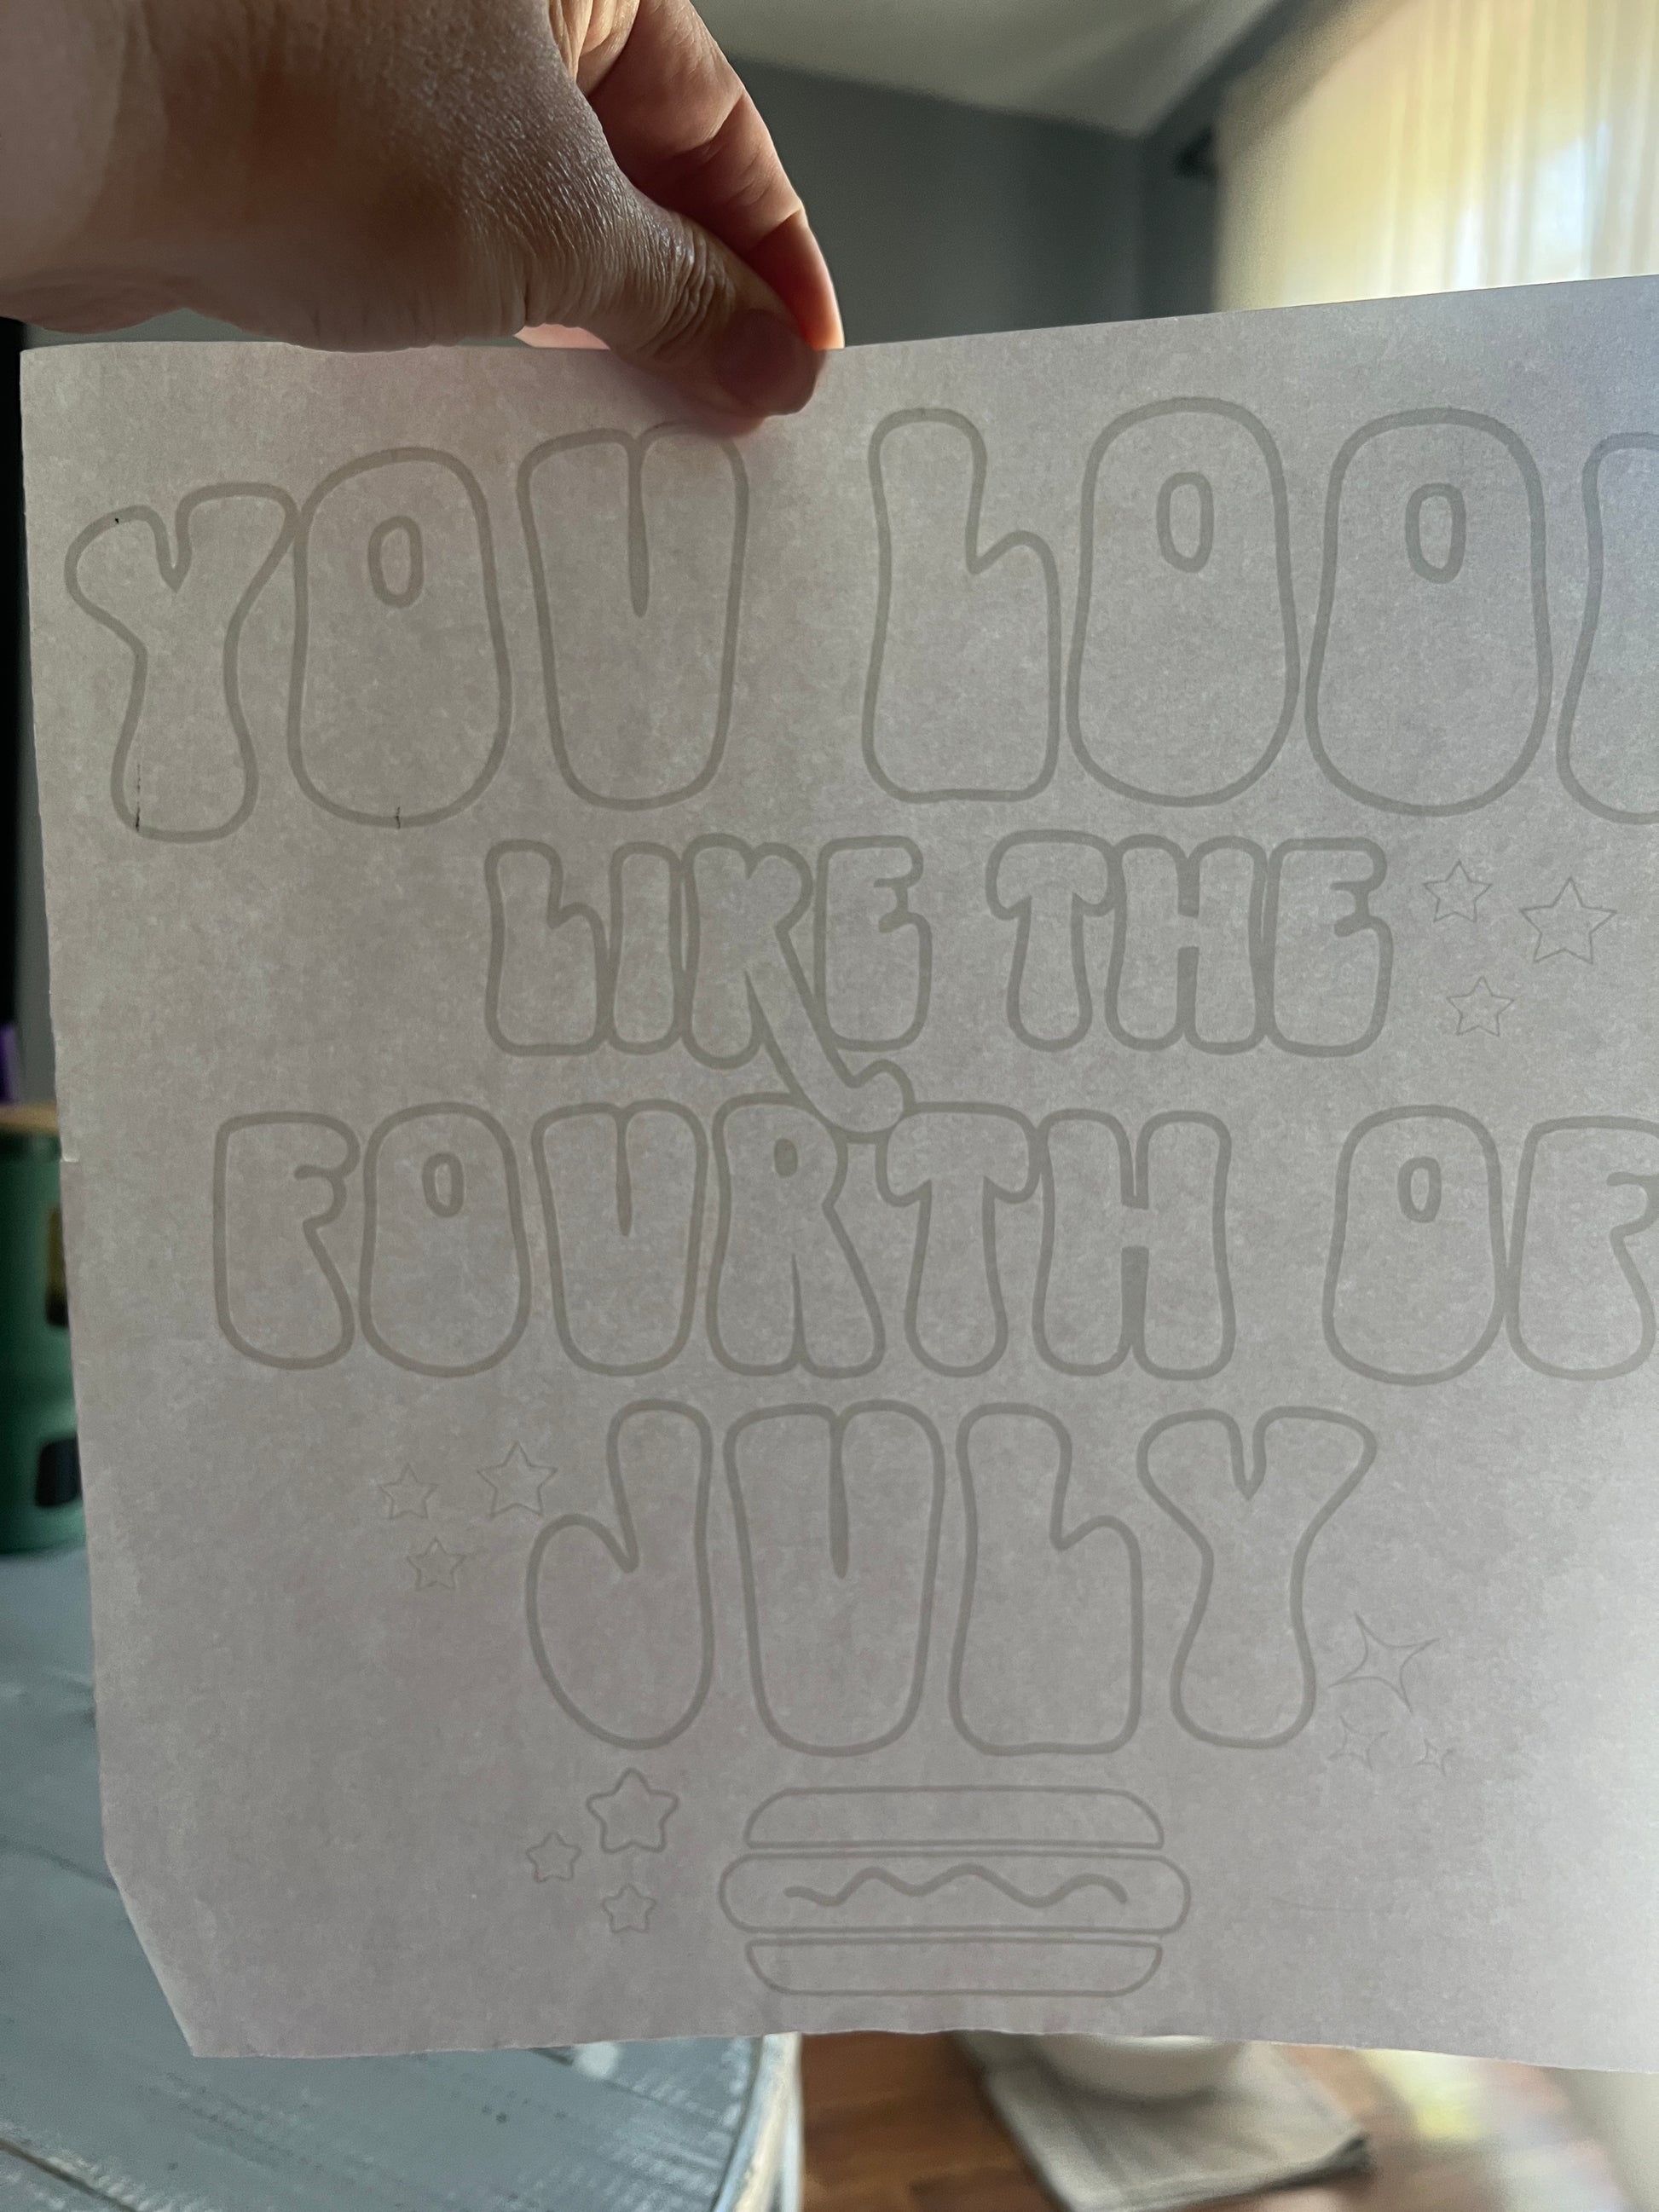 YOU LOOK
LIKE THE
FOURTH OF
JULY